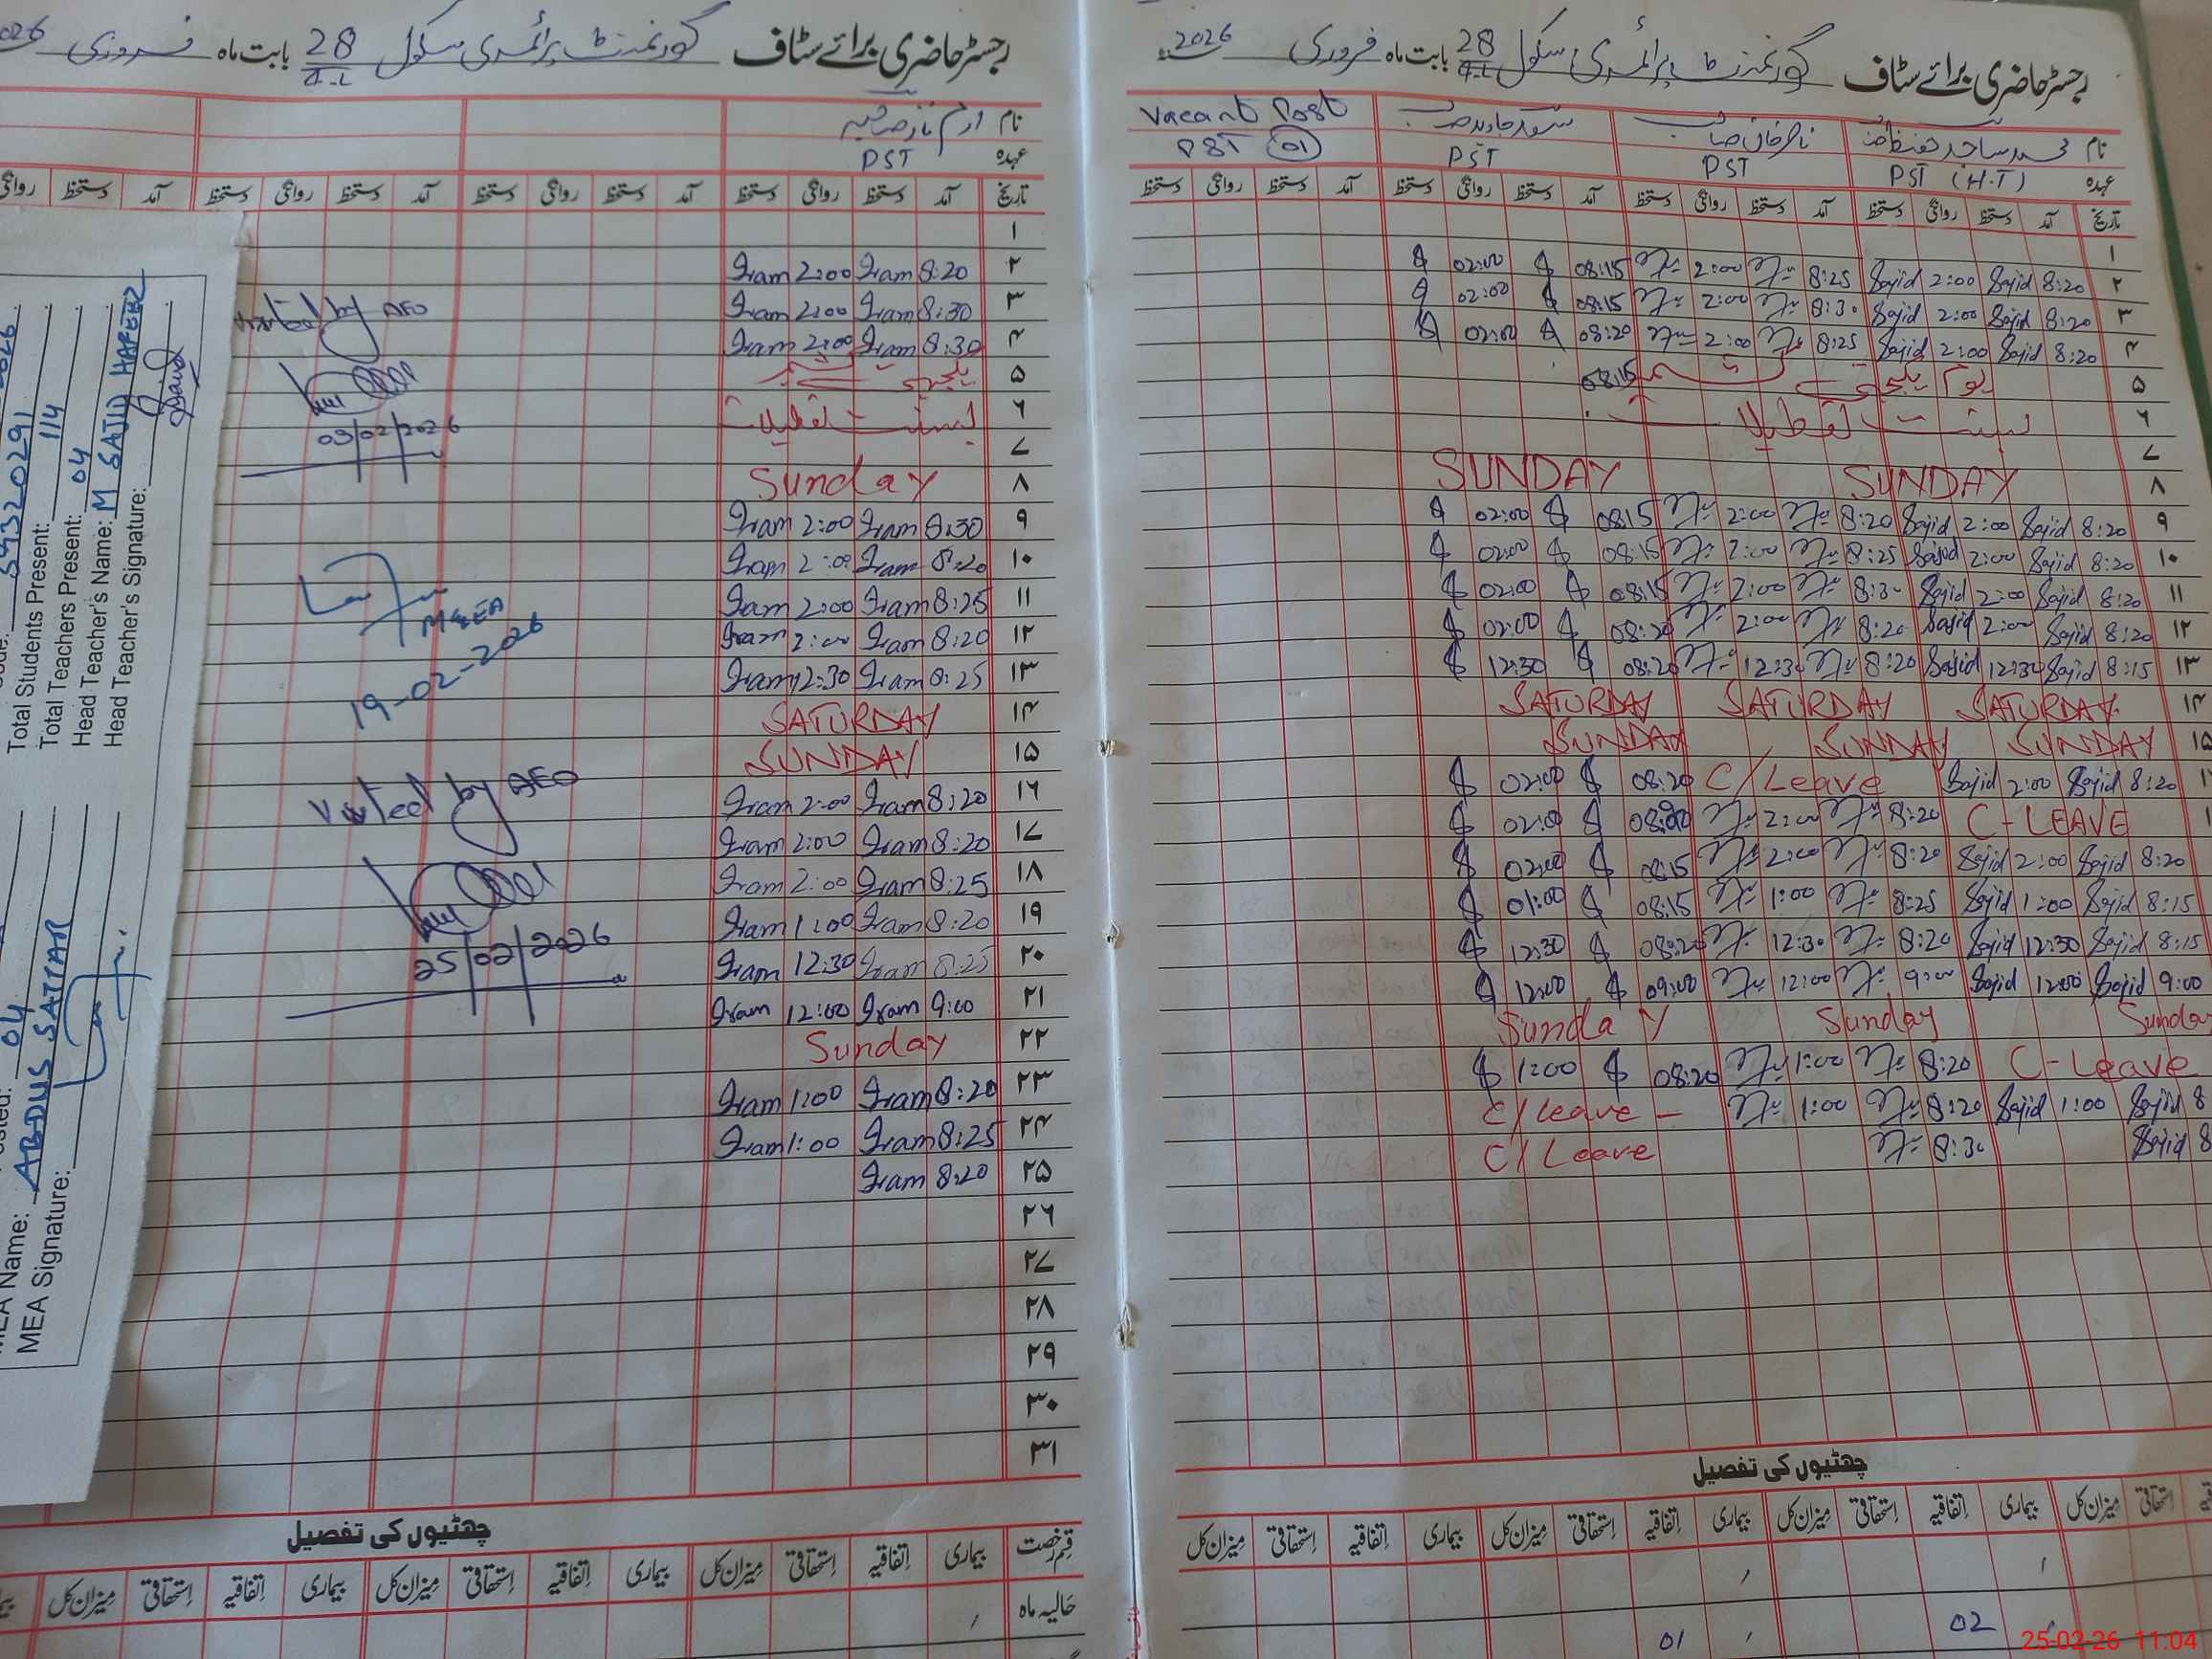 رجسٹر حاضری برائے سٹاف گورنمنٹ پرائمری سکول 28/4-L بابت ماہ فروری 2026
نام محمد ساجد حفیظ PST (H.T)
ناصر خان صاحب PST
PST
Vacant Post PST 01
عہدہ
تاریخ آمد دستخط روانگی دستخط آمد دستخط روانگی دستخط آمد دستخط روانگی دستخط آمد دستخط روانگی دستخط
۱
۲ 8:20 Sajid 2:00 Sajid 8:25 2:00 08:15 02:00
۳ 8:20 Sajid 2:00 Sajid 8:30 2:00 08:15 02:00
۴ 8:20 Sajid 2:00 Sajid 8:25 2:00 08:20 02:00
۵ یوم یکجہتی کشمیر 08:15
۶ بسنت تعطیلات
۷
۸ SUNDAY SUNDAY
۹ 8:20 Sajid 2:00 Sajid 8:20 2:00 0815 02:00
۱۰ 8:20 Sajid 2:00 Sajid 8:25 2:00 08:15 02:00
۱۱ 8:20 Sajid 2:00 Sajid 8:30 2:00 08:15 02:00
۱۲ 8:20 Sajid 2:00 Sajid 8:20 2:00 08:20 02:00
۱۳ 8:15 Sajid 12:30 Sajid 8:20 12:30 08:20 12:30
۱۴ SATURDAY SATURDAY SATURDAY
۱۵ SUNDAY SUNDAY SUNDAY
8:20 Sajid 2:00 Sajid C/Leave 08:20 02:00
C-LEAVE 8:20 2:00 02:00
8:20 Sajid 2:00 Sajid 8:20 2:00 08:15 02:00
8:15 Sajid 1:00 Sajid 8:25 1:00 08:15 01:00
8:15 Sajid 12:30 Sajid 8:20 12:30 08:20 12:30
9:00 Sajid 12:00 Sajid 9:00 12:00 09:00 12:00
Sunday Sunday Sunday
C-Leave 8:20 1:00 08:20 1:00
8 Sajid 1:00 Sajid 8:20 1:00 C/Leave -
8 Sajid 8:30 C/Leave
چھٹیوں کی تفصیل
استحقاقی میزان کل بیماری اتفاقیہ استحقاقی میزان کل بیماری اتفاقیہ استحقاقی میزان کل بیماری اتفاقیہ استحقاقی میزان کل
02 01
25-02-26 11:04
رجسٹر حاضری برائے سٹاف گورنمنٹ پرائمری سکول 28/4-L بابت ماہ فروری 2026
نام ارم ناز صاحبہ
عہدہ PST
تاریخ آمد دستخط روانگی دستخط آمد دستخط روانگی دستخط آمد دستخط روانگی دستخط آمد دستخط روانگی
۱
۲ 8:20 Iram 2:00 Iram
۳ 8:30 Iram 2:00 Iram
۴ 8:30 Iram 2:00 Iram
۵ یکجہتی کشمیر
۶ بسنت تعطیلات
۷
۸ Sunday
۹ 8:30 Iram 2:00 Iram
۱۰ 8:20 Iram 2:00 Iram
۱۱ 8:25 Iram 2:00 Iram
۱۲ 8:20 Iram 2:00 Iram
۱۳ 8:25 Iram 12:30 Iram
۱۴ SATURDAY
۱۵ SUNDAY
۱۶ 8:20 Iram 2:00 Iram
۱۷ 8:20 Iram 2:00 Iram
۱۸ 8:25 Iram 2:00 Iram
۱۹ 8:20 Iram 1:00 Iram
۲۰ 8:25 Iram 12:30 Iram
۲۱ 9:00 Iram 12:00 Iram
۲۲ Sunday
۲۳ 8:20 Iram 1:00 Iram
۲۴ 8:25 Iram 1:00 Iram
۲۵ 8:20 Iram
۲۶
۲۷
۲۸
۲۹
۳۰
۳۱
چھٹیوں کی تفصیل
قسم رخصت بیماری اتفاقیہ استحقاقی میزان کل بیماری اتفاقیہ استحقاقی میزان کل بیماری اتفاقیہ استحقاقی میزان کل
حالیہ ماہ
Visited by AEO
03/02/2026
MEA
19-02-2026
Visited by AEO
25/02/2026
Total Students Present: 114
Total Teachers Present: 04
Head Teacher's Name: M SAJID HAFEEZ
Head Teacher's Signature: Sajid
04
MEA Name: ABDUS SATTAR
MEA Signature: